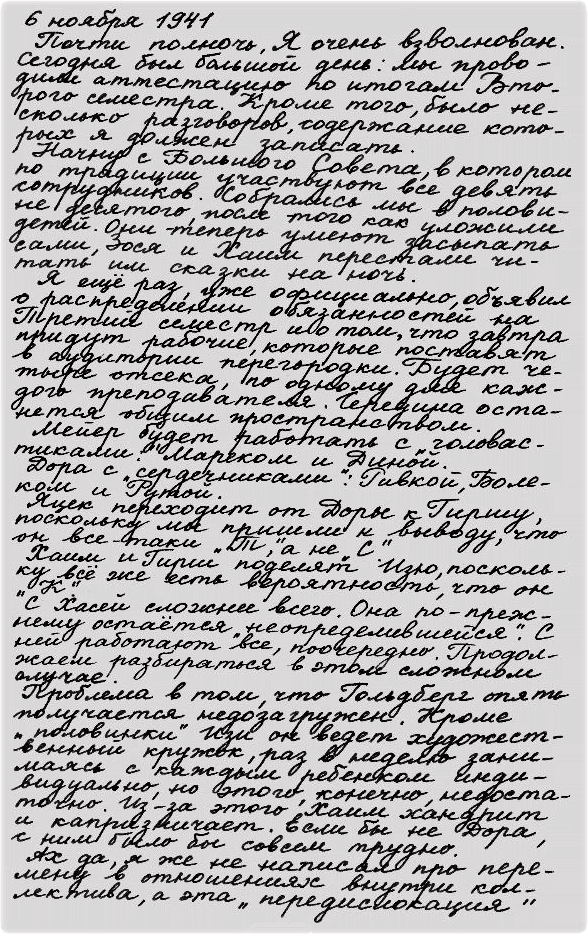 6 ноября 1941
Почти полночь, Я очень взволнован.
Сегодня был большой день: мы прово-
дили аттестацию по итогам Вто-
рого семестра. Кроме того, было не-
сколько разговоров, содержание кото-
рых я должен записать.
Начну с Большого Совета, в котором
по традиции участвуют все девять
сотрудников. Собрались мы в полови-
не девятого, после того как уложили
детей. Они теперь умеют засыпать
сами, Зося и Хаим перестали чи-
тать им сказки на ночь.
Я ещё раз, уже официально, объявил
о распределении обязанностей на
Третий семестр и о том, что завтра
придут рабочие, которые поставят
в аудитории перегородки. Будет че-
тыре отсека, по одному для каж-
дого преподавателя. Середина оста-
нется общим пространством.
Мейер будет работать с „голoвас-
тиками": Мареком и Диной.
Дора с „сердечниками": Ривкой, Боле-
ком и Рутой.
Яцек переходит от Доры к Гиршу,
поскольку мы пришли к выводу, что
он все-таки „Т", а не „С"
Хаим и Гирш поделят Изю, посколь-
ку всё же есть вероятность, что он
„К"
С Хасей сложнее всего. Она по-преж-
нему остаётся „неопределившейся". С
ней работают все, поочередно. Продол-
жаем разбираться в этом сложном
случае.
Проблема в том, что Гольдберг опять
получается недозагружен. Кроме
„половинки" Изи он ведет художест-
венный кружок, раз в неделю зани-
маясь с каждым ребенком инди-
видуально, но этого, конечно, недоста-
точно. Из-за этого Хаим хандрит
и капризничает. Если бы не Дора,
с ним было бы совсем трудно.
Ах да, я же не написал про пере-
мену в отношениях внутри кол-
лектива, а эта „передислокация"